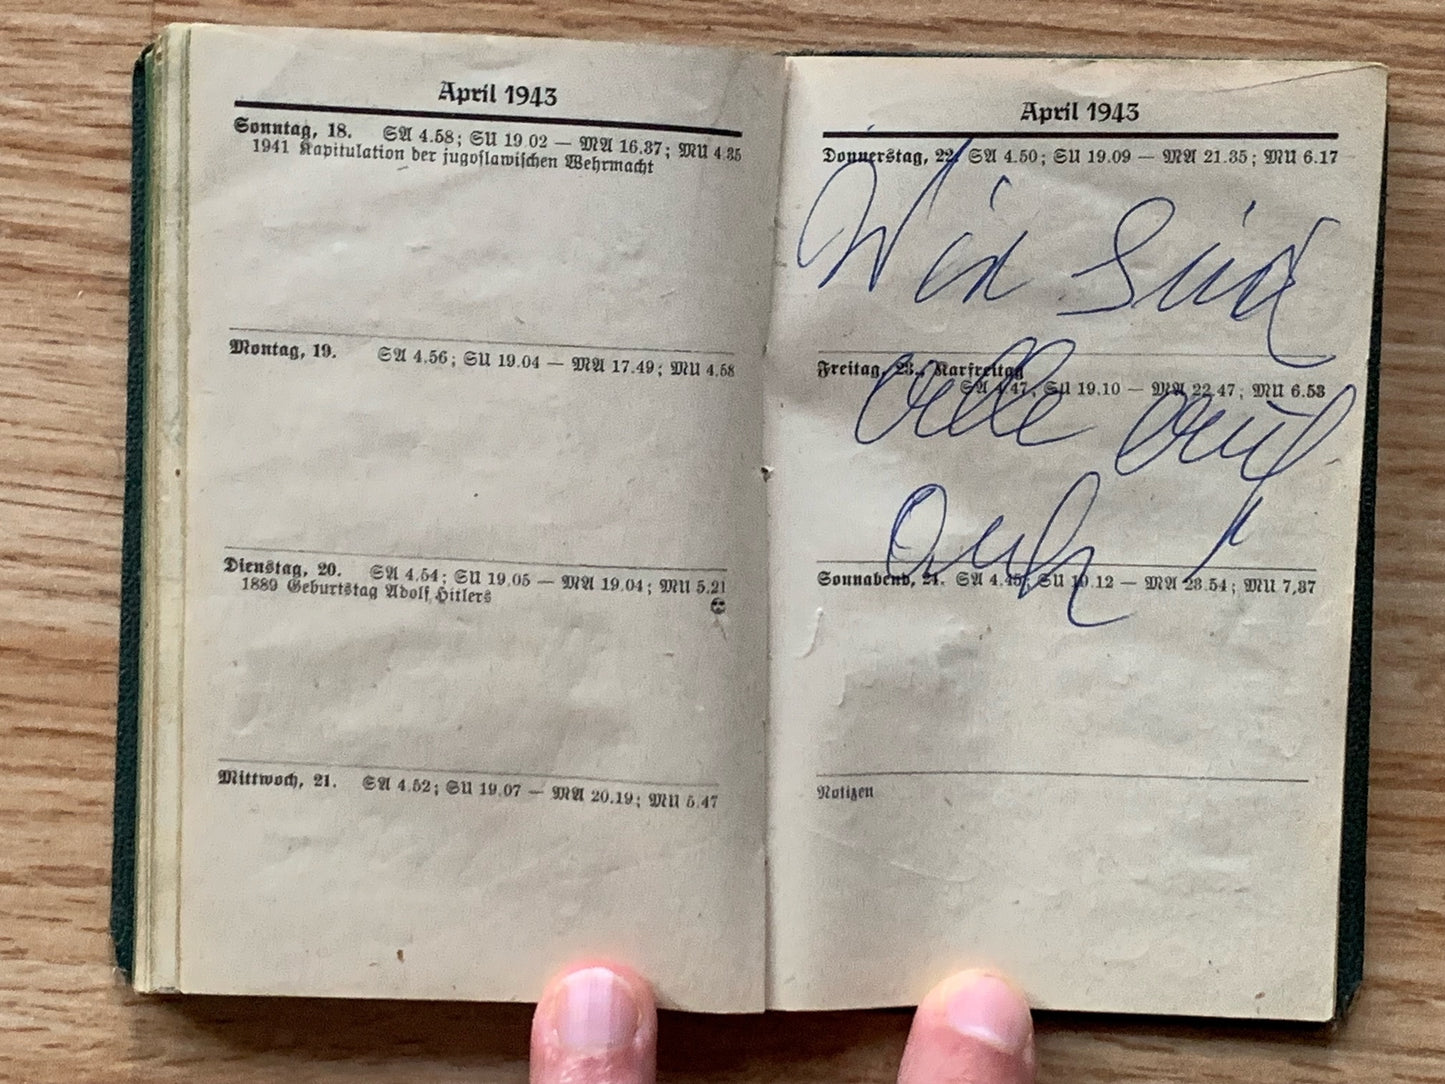 April 1943
Sonntag, 18. SA 4.58; SU 19.02 — MA 16.37; MU 4.35
1941 Kapitulation der jugoslawischen Wehrmacht
Montag, 19. SA 4.56; SU 19.04 — MA 17.49; MU 4.58
Dienstag, 20. SA 4.54; SU 19.05 — MA 19.04; MU 5.21
1889 Geburtstag Adolf Hitlers
Mittwoch, 21. SA 4.52; SU 19.07 — MA 20.19; MU 5.47
April 1943
Donnerstag, 22. SA 4.50; SU 19.09 — MA 21.35; MU 6.17
Wir sind
Freitag, 23., Karfreitag
SA 4.47; SU 19.10 — MA 22.47; MU 6.53
alle auf
Sonnabend, 24. SA 4.45; SU 19.12 — MA 23.54; MU 7.37
Notizen